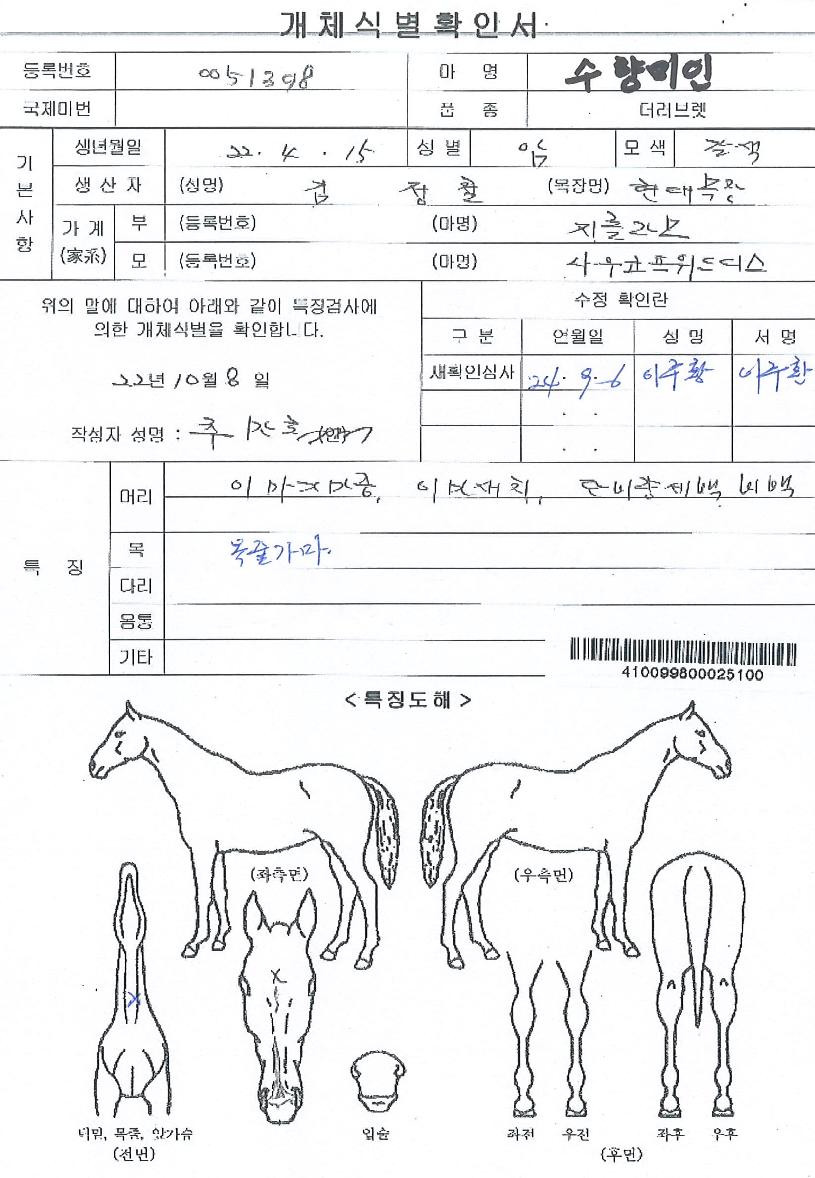 개체식별확인서
등록번호 0051398 마 명 수향미인
국제마번 품 종 더러브렛
기본사항
생년월일 22. 4. 15 성 별 암 모 색 갈색
생 산 자 (성명) 김 정 훈 (목장명) 현대목장
가 계 (家系) 부 (등록번호) (마명) 지롤라모
모 (등록번호) (마명) 사우코프위드디스
위의 말에 대하여 아래와 같이 특징검사에
의한 개체식별을 확인합니다.
22년 10월 8일
작성자 성명 : (인)
수정 확인란
구 분 연월일 성 명 서 명
재확인심사 24. 9. 6 이주황 이주환
특 징
머리
목 목줄가마.
다리
몸통
기타
410099800025100
<특징도해>
(좌측면) (우측면)
턱밑, 목줄, 앞가슴
(전면)
입술
좌전 우전 좌후 우후
(후면)